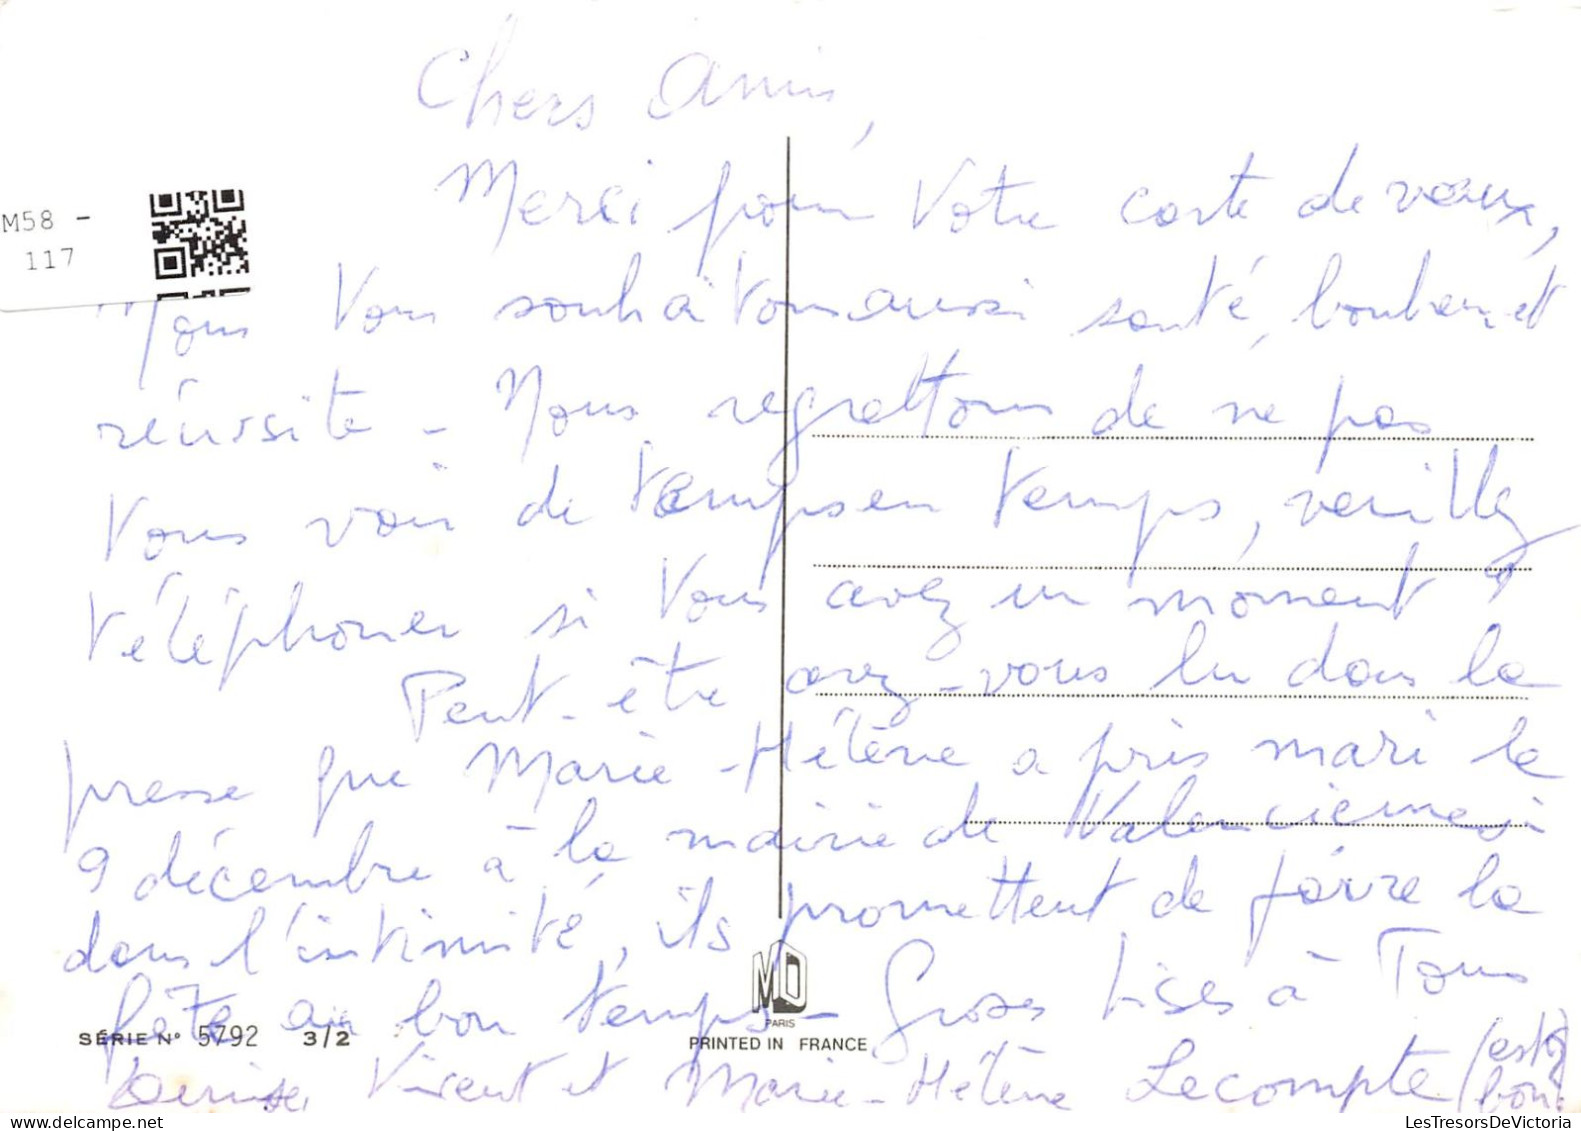 Chers Amis,
Merci pour Votre carte de vœux,
M58 -
117
Nous Vous souhaitons aussi santé, bonheur et
réussite - Nous regrettons de ne pas
Vous voir de temps en temps, veuillez
téléphoner si Vous avez un moment ?
Peut-être avez-vous lu dans la
presse que Marie-Hélène a pris mari le
9 décembre à la mairie de Valenciennes
dans l'intimité, ils promettent de faire la
fête au bon temps - Grosses bises à Tous
MD
PARIS
SÉRIE N° 5792 3/2
PRINTED IN FRANCE
Denise, Vincent et Marie-Hélène Lecompte (est
bon
LesTresorsDeVictoria